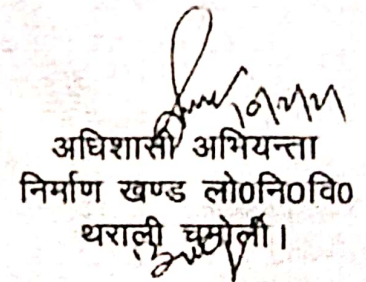 अधिशासी अभियन्ता
निर्माण खण्ड लो0नि0वि0
थराली चमोली।